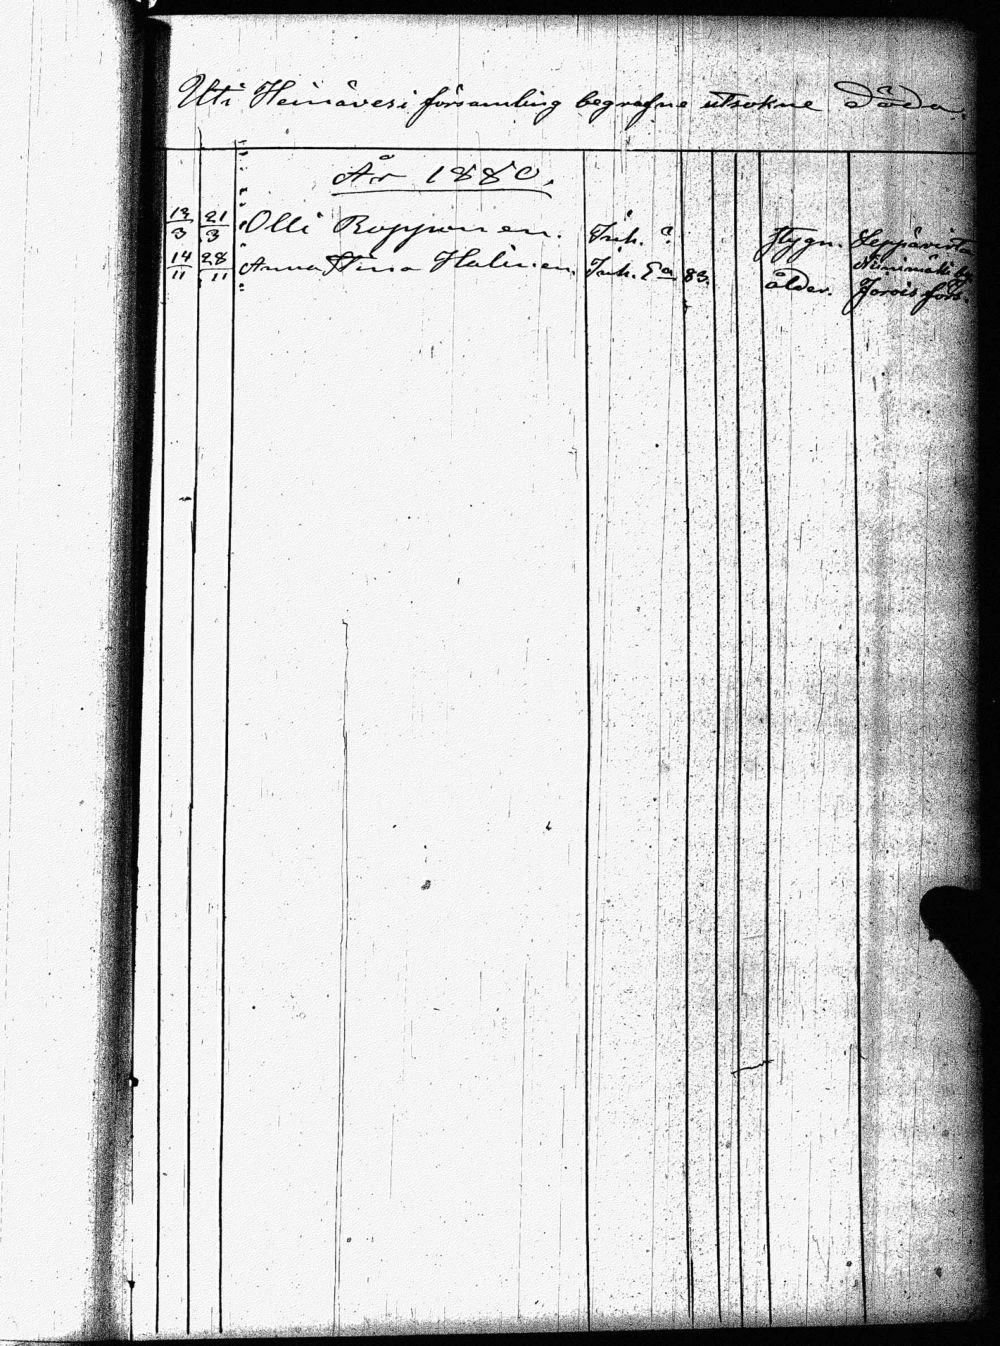 Uti Heinävesi församling begrafne utsokne Döda.
År 1880.
12/3 21/3 Olli Roppon en. Inh. ? flygn. Leppävirta
14/11 28 11 Anna Stina Halinen. Inh. Ea 83. ålder. Niinimäki by Jorois förs.